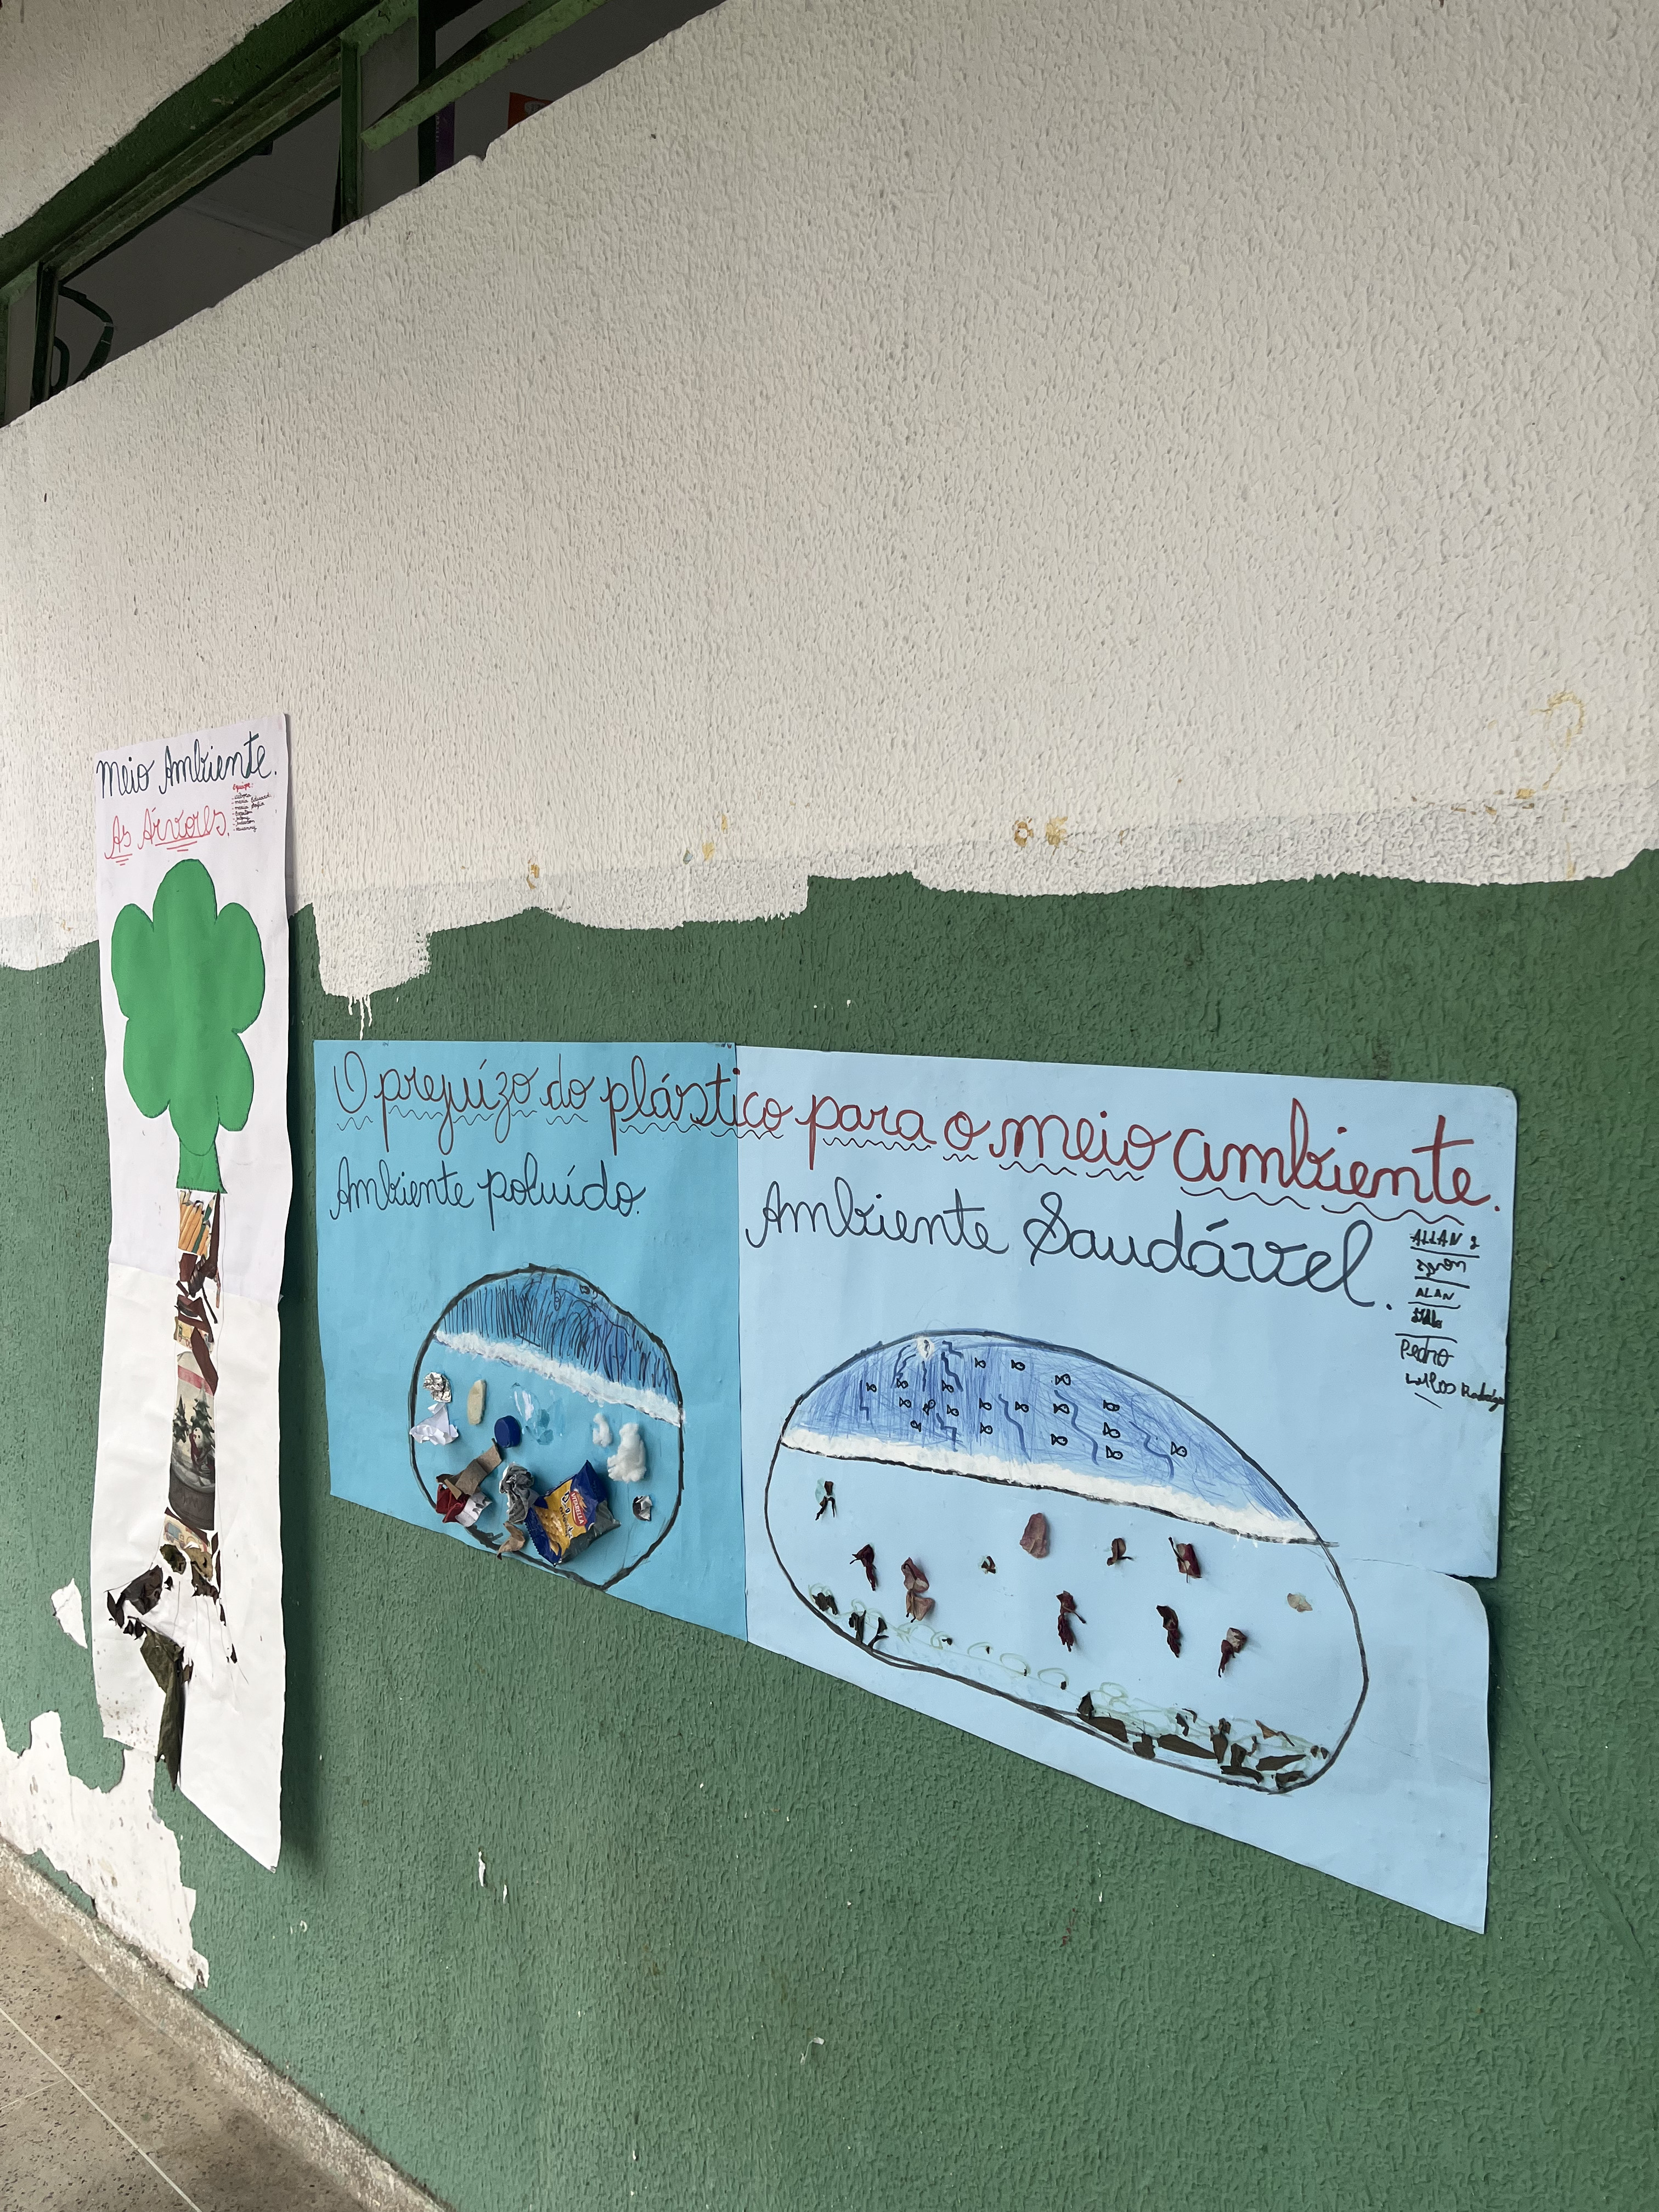 Meio Ambiente.
As Árvores.
Equipe:
O prejuízo do plástico para o meio ambiente.
Ambiente poluído.
Ambiente Saudável.
ALLAN
ALAN
Pedro
VITARELLA